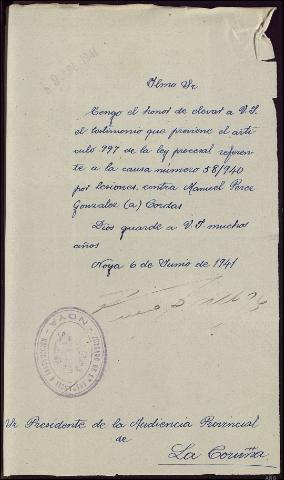 Ilmo Sr
Tengo el honor de elevar a V.S.
el testimonio que previene el artí-
culo 997 de la ley procesal referen-
te a la causa número 58/940
por lesiones, contra Manuel Perez
Gonzalez (a) Cordas
Dios guarde a V.S. muchos
años
Noya 6 de Junio de 1941
NOYA
JUZGADO DE 1ª INSTANCIA E INSTRUCCION
Sr Presidente de la Audiencia Provincial
de
La Coruña